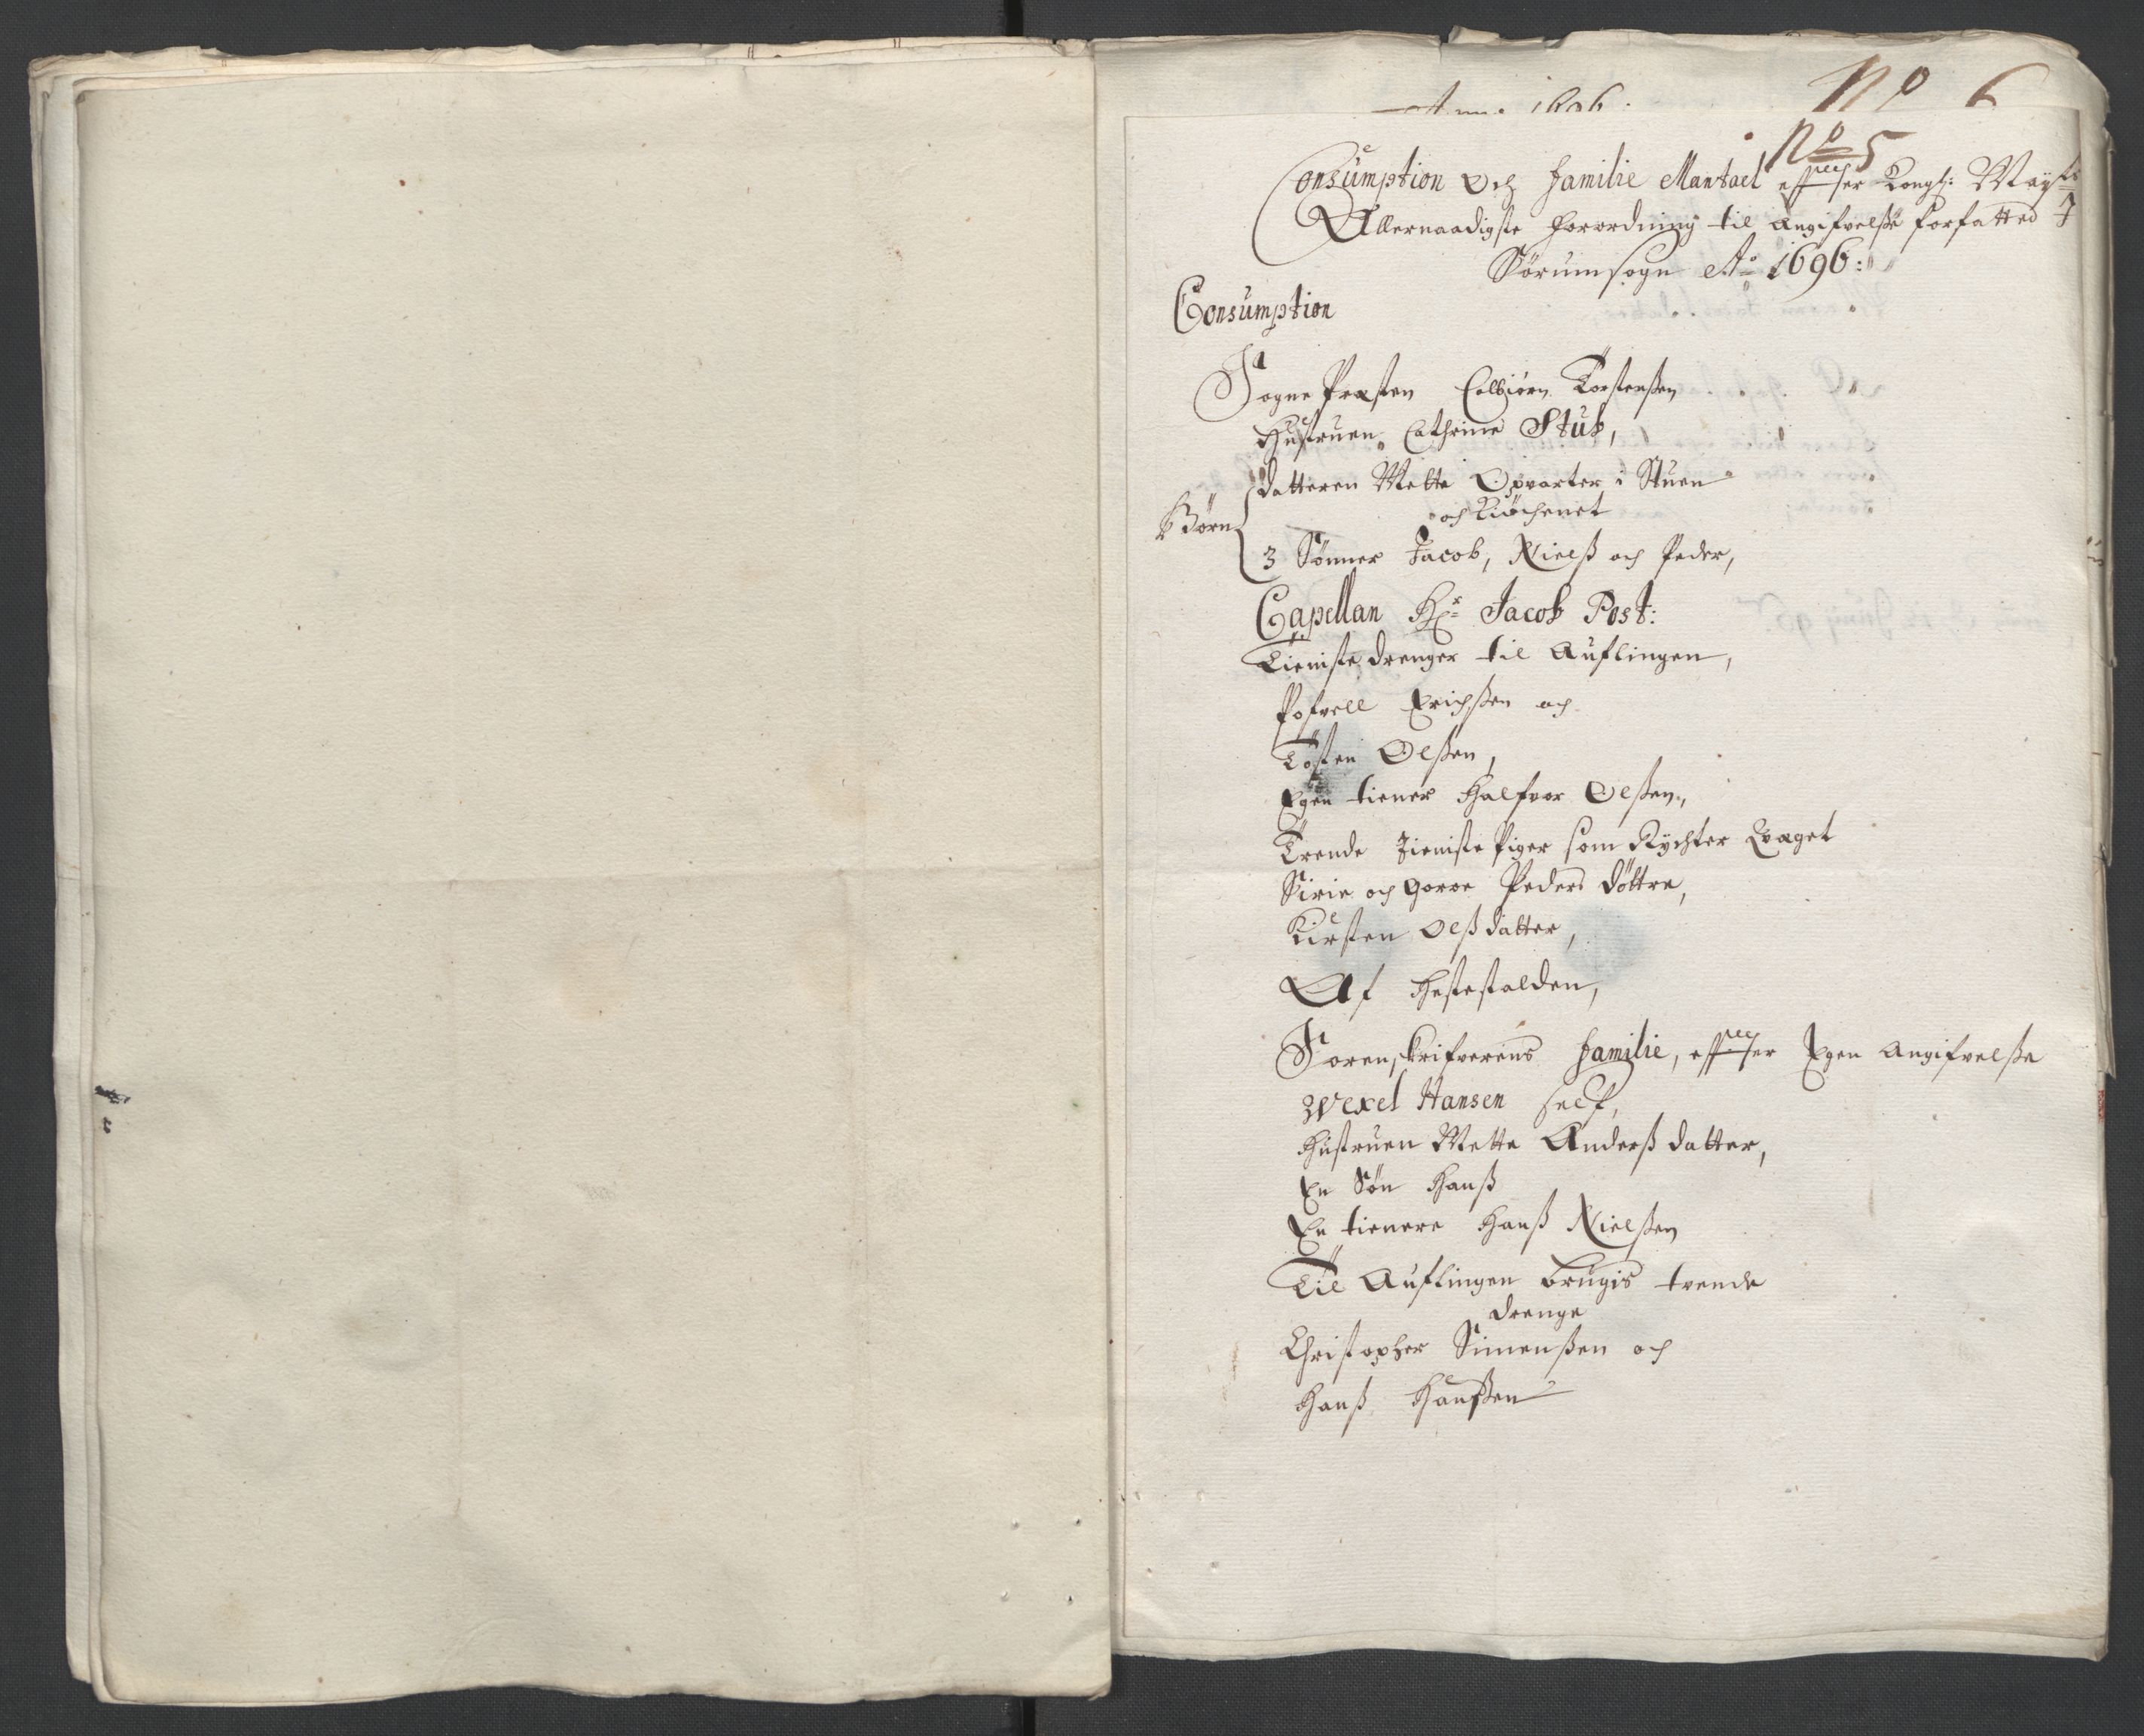 Anno 1696.
No 6
No 5
Consumption Och familie Mantael efter Kongl: Mayts
Allernaadigste forordning til Angifvelße forfatted I
Sørumsogn Ao 1696:
Consumption
Sogne Præsten Colbiørn Torstenßen
Hustruen Cathrine Stub,
Børn
Datteren Mette Opvarter i Stuen
och Kiøchenet
3 Sønner Jacob, Nielß och Peder,
Capellan Hr Jacob Post:
Tieniste drenger til Auflingen,
Pofvell Erichßen och
Tosten Olßen,
Egen tiener Halfvor Olßen,
Trende Tieniste Piger som Rychter Qvæget
Sirie och Gorve Peders Døttre,
Kirsten Olßdatter,
Af Hestestalden,
Sorenskrifverens familie, efter Egen Angifvelße
Wexel Hansen self,
Hustruen Mette Anderß datter,
En Søn Hanß
En tienere Hanß Nielßen
Til Auflingen brugis tvende
drenge
Christopher Simenßen och
Hanß Hanßen